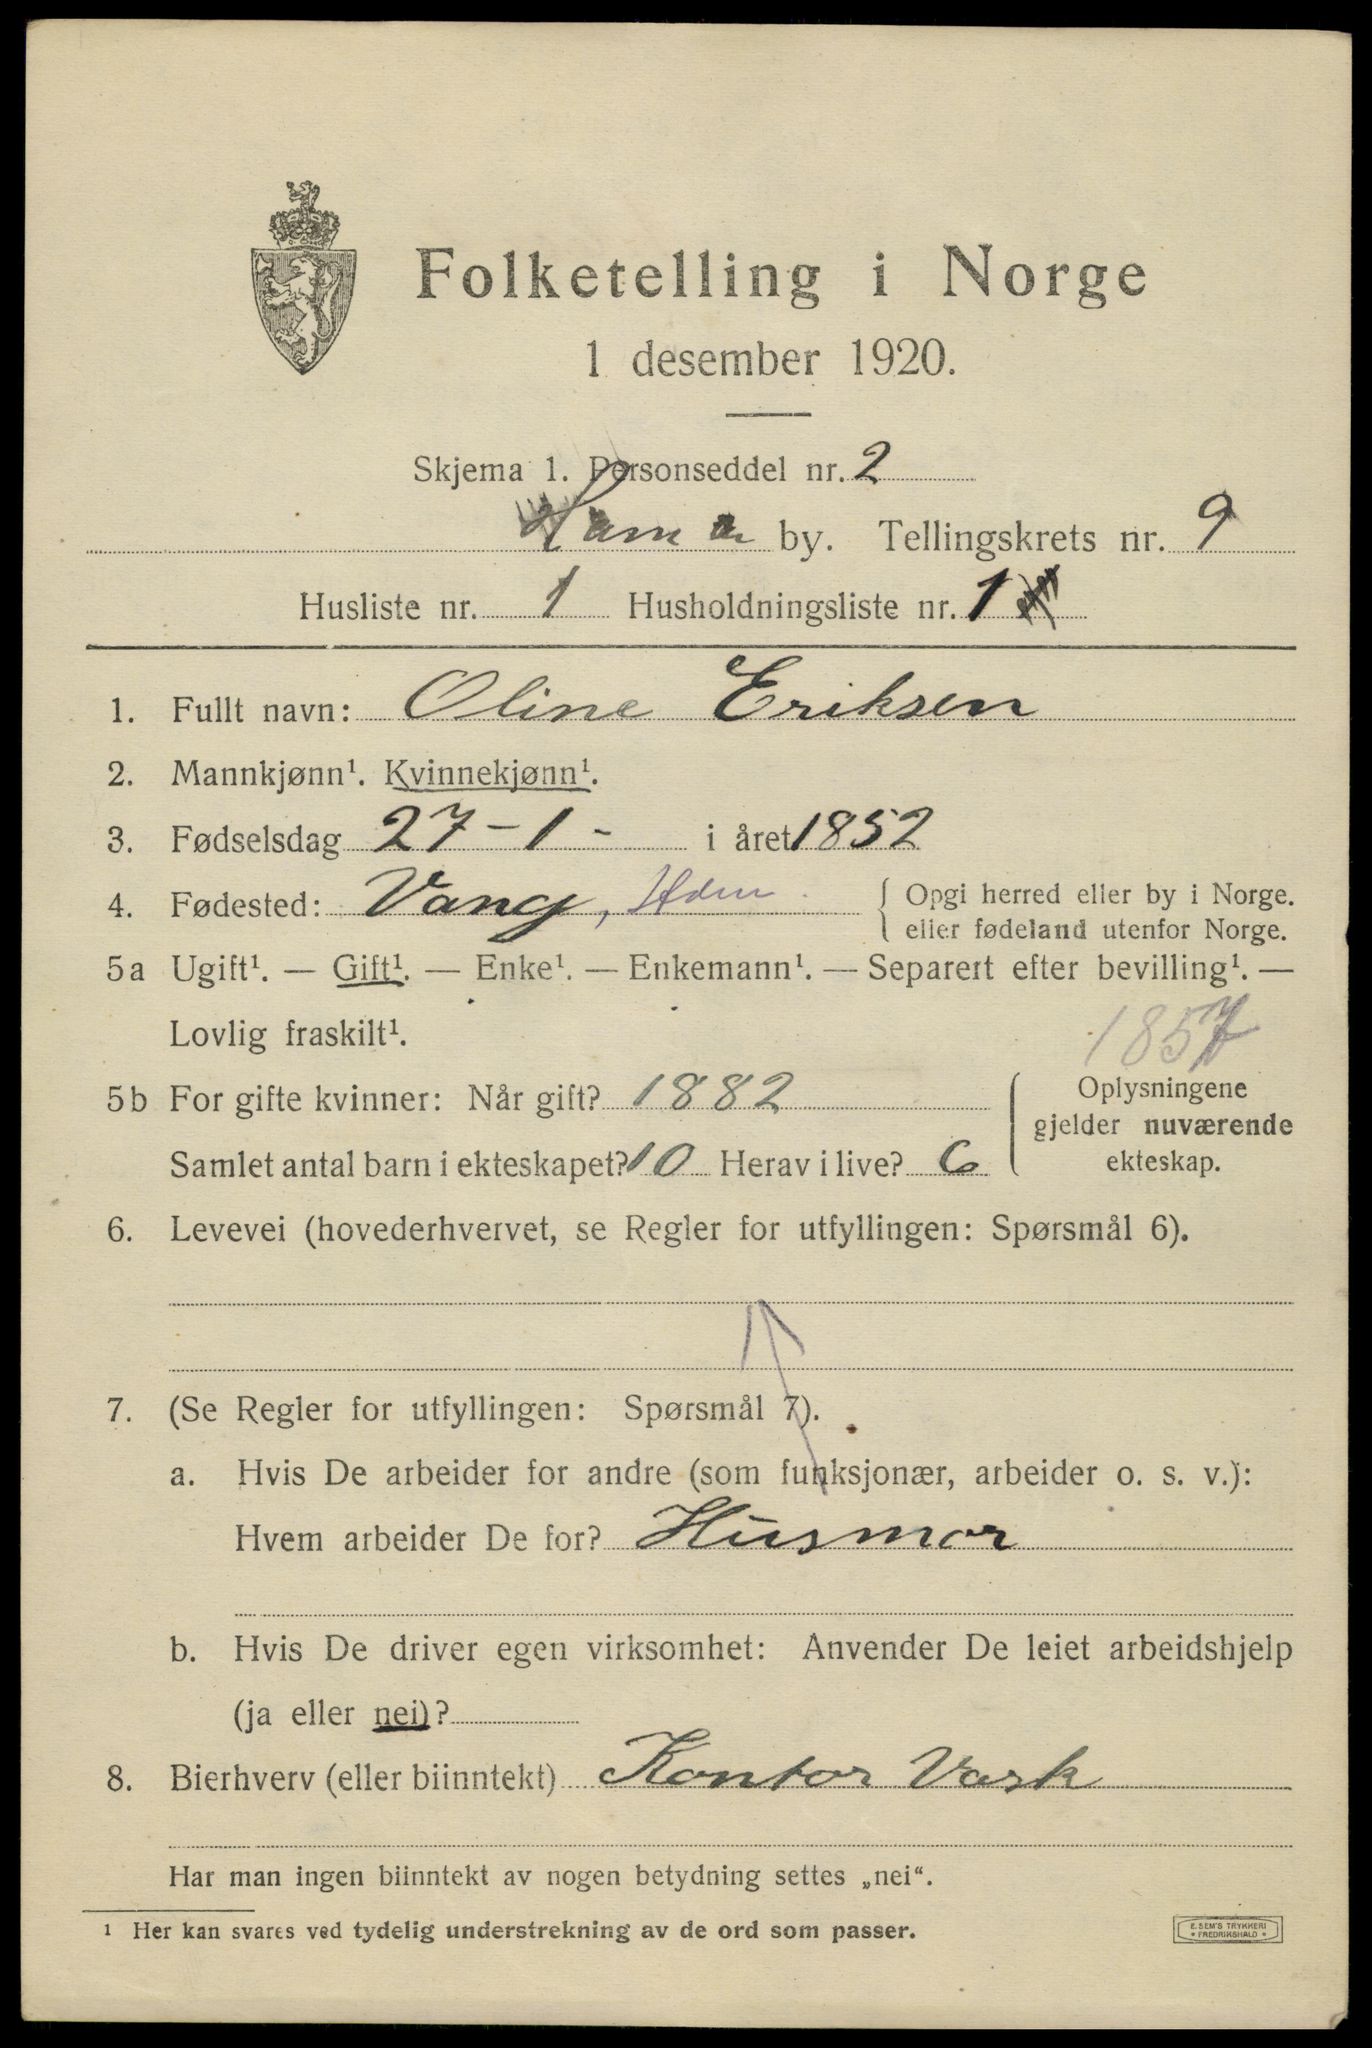 Folketelling i Norge
1 desember 1920.
Skjema 1. Personseddel nr. 2
Hamar by. Tellingskrets nr. 9
Husliste nr. 1 Husholdningsliste nr. 1
1. Fullt navn: Oline Eriksen
2. Mannkjønn¹. Kvinnekjønn¹.
3. Fødselsdag 27-1- i året 1852
4. Fødested: Vang, Hdm { Opgi herred eller by i Norge.
eller fødeland utenfor Norge.
5a Ugift¹. — Gift¹. — Enke¹. — Enkemann¹. — Separert efter bevilling¹. —
Lovlig fraskilt¹.
1857
5b For gifte kvinner: Når gift? 1882
Samlet antal barn i ekteskapet? 10 Herav i live? 6
Oplysningene
gjelder nuværende
ekteskap.
6. Levevei (hovederhvervet, se Regler for utfyllingen: Spørsmål 6).
7. (Se Regler for utfyllingen: Spørsmål 7).
a. Hvis De arbeider for andre (som funksjonær, arbeider o. s. v.):
Hvem arbeider De for? Husmor
b. Hvis De driver egen virksomhet: Anvender De leiet arbeidshjelp
(ja eller nei)?
8. Bierhverv (eller biinntekt) Kontor Vask
Har man ingen biinntekt av nogen betydning settes „nei“.
¹ Her kan svares ved tydelig understrekning av de ord som passer.
E. SEM'S TRYKKERI
* FREDRIKSHALD *